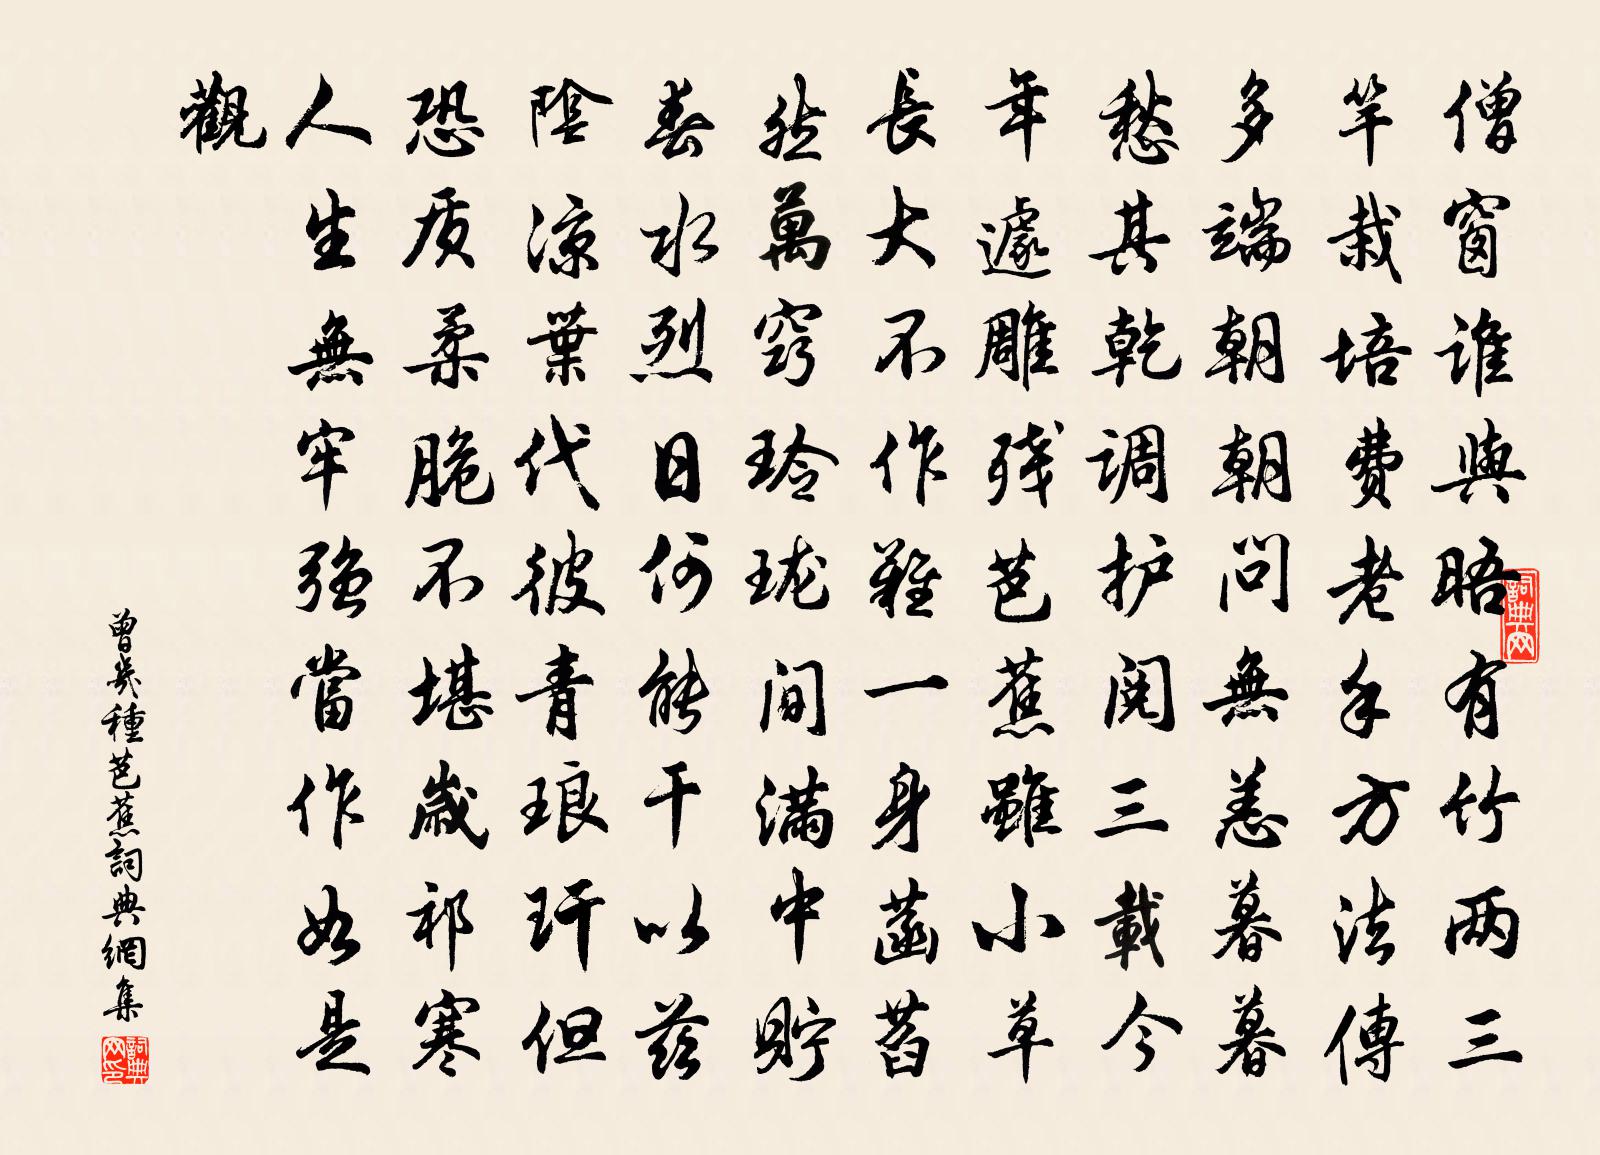 僧窗谁與晤有竹两三
竿栽培费老手方法傳
多端朝朝问無恙暮暮
愁其乾调护阅三載今
年遽雕残芭蕉雖小草
長大不作難一身菡萏
然萬窍玲珑间满中貯
春水烈日何能干以兹
陰涼葉代彼青琅玕但
恐质柔脆不堪歲祁寒
人生無牢強當作如是
觀
曾幾種芭蕉詞典網集
詞典网
詞典网印